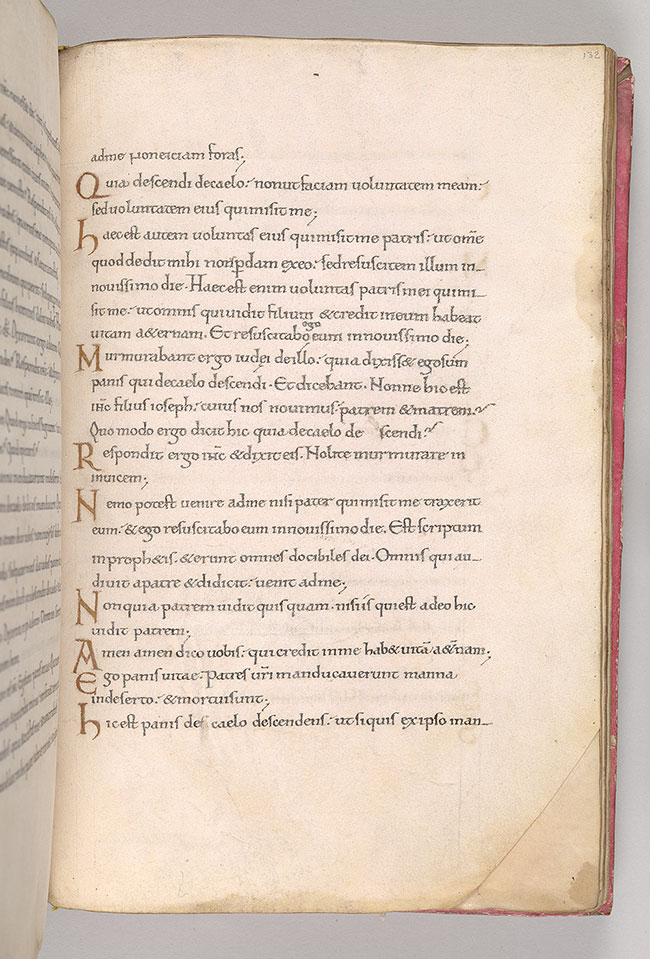 132
adme noneiciam foras;
Quia descendi decaelo: nonutfaciam voluntatem meam:
sedvoluntatem eius quimisitme;
haecest autem voluntas eius quimisitme patris: ut om̄e
quoddedit mihi nonꝑdam exeo: sedresuscitem illum in-
novissimo die. Haecest enim voluntas patrismei quimi-
sitme: utomnis quividit filium & credit ineum habeat
vitam a&ernam. Et resuscitabo ego eum innovissimo die;
Murmurabant ergo iudęi deillo: quia dixiss& egosum
panis quidecaelo descendi. Et dicebant. Nonne hicest
ih̄c filius ioseph: cuius nos novimus patrem & matrem.
Quo modo ergo dicit hic quia decaelo de scendi:
Respondit ergo ih̄c & dixit eis. Nolite murmurare in
invicem;
Nemo potest venire adme nisi pater quimisit me traxerit
eum: & ego resuscitabo eum innovissimo die. Est scriptum
inproph&is. & erunt omnes docibiles dei. Omnis qui au-
divit apatre & didicit: venit adme;
Nonquia patrem vidit quisquam. nisiis quiest adeo hic
vidit patrem;
Amen amen dico vobis: qui credit inme hab& vitā a&̄nam;
Ego panis vitae. Patres vr̄i manducaverunt manna
indeserto. & mortuisunt;
hicest panis des caelo descendens: utsiquis exipso man-